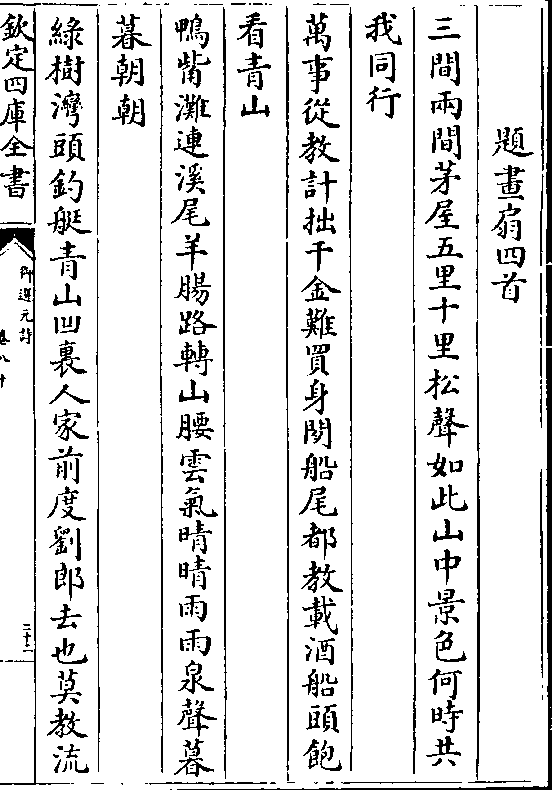 題畫扇四首
三間兩間茅屋五里十里松聲如此山中景色何時共
我同行
萬事從教計拙千金難買身閒船尾都教載酒船頭飽
看青山
鴨觜灘連溪尾羊腸路轉山腰雲氣晴晴雨雨泉聲暮
暮朝朝
綠樹灣頭釣艇青山凹裏人家前度劉郎去也莫教流
欽定四庫全書
御選元詩
卷八十
二十二